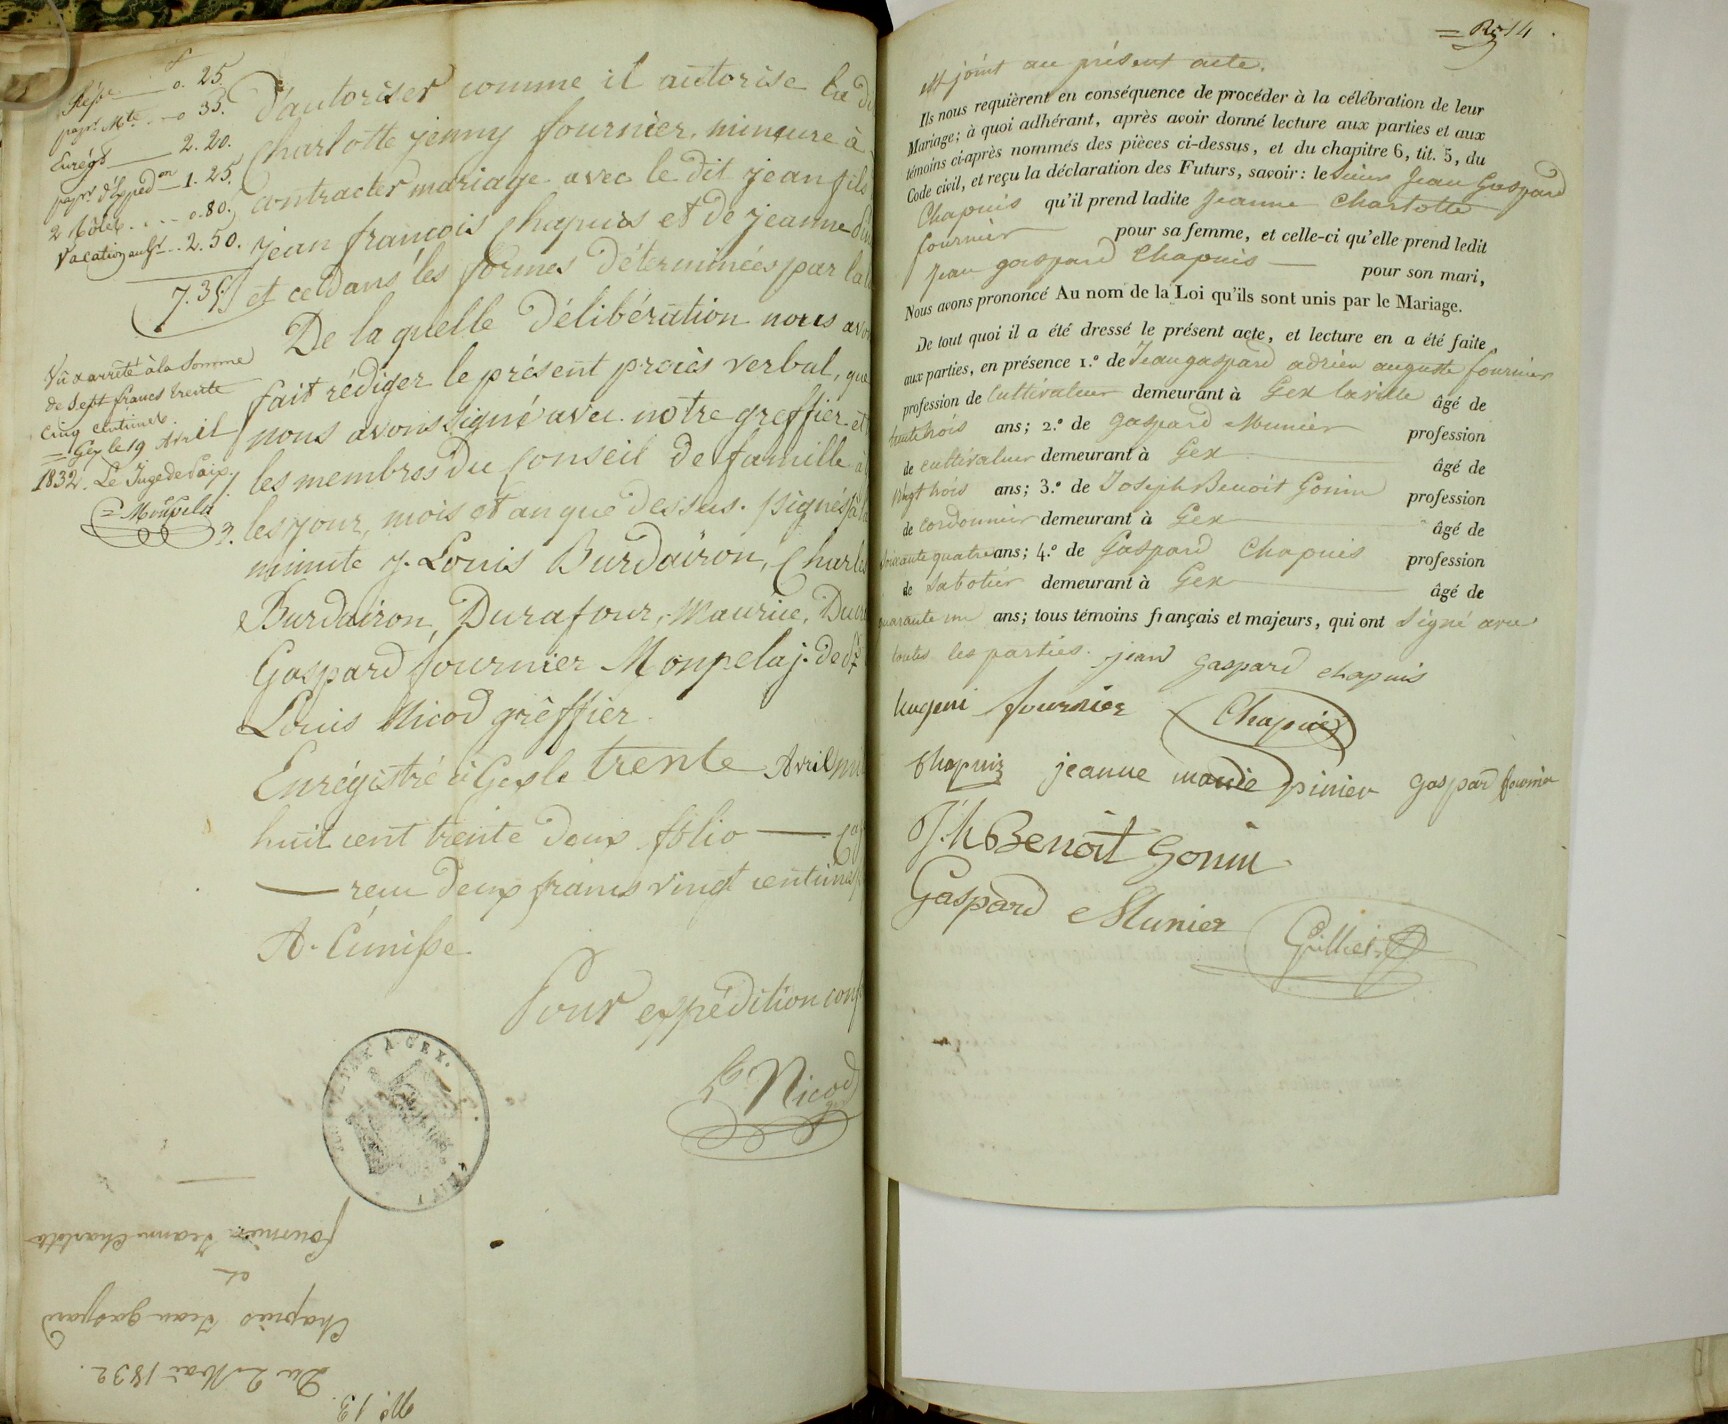 Repse 0. 25.
papr. Mte 0 35.
Enrégt 2. 20.
papr. d'Expedon 1. 25.
2 Rôles 0. 80.
Vacation au Gr. 2. 50.
7. 35
Vû & arrêté à la Somme
de Sept francs trente
cinq centimes.
= Gex le 19 Avril
1832. Le Juge de Paix,
= Monpela
d'autoriser comme il autorise la
Charlotte jenny fournier, mineure à
contracter mariage avec le dit jean fils
jean françois Chapuis et de jeanne
et ce dans les formes déterminées par la
De la quelle délibération nous
fait rédiger le présent procès verbal, que
nous avons signé avec notre greffier et
les membres du Conseil de famille
les jour, mois et an que dessus. signés à la
minute J. Louis Burdairon, Charles
Burdairon, Durafour, Maurice,
Gaspard fournier Monpela j. de
Louis Nicod greffier.
Enrégistré à Gex le trente Avril
huit cent trente deux folio
reçu deux francs vingt centimes
Pour expédition
Nicod
A GEX.
N.° 13.
Du 2 Mai 1832.
Chapuis Jean gaspard
et
fournier Jeanne Charlotte
14
est joint au présent acte.
Ils nous requièrent en conséquence de procéder à la célébration de leur
Mariage; à quoi adhérant, après avoir donné lecture aux parties et aux
témoins ci-après nommés des pièces ci-dessus, et du chapitre 6, tit. 5, du
Code civil, et reçu la déclaration des Futurs, savoir: le Sieur Jean Gaspard
Chapuis qu'il prend ladite Jeanne Charlotte
fournier pour sa femme, et celle-ci qu'elle prend ledit
Jean gaspard Chapuis pour son mari,
Nous avons prononcé Au nom de la Loi qu'ils sont unis par le Mariage.
De tout quoi il a été dressé le présent acte, et lecture en a été faite
aux parties, en présence 1.° de Jean gaspard adrien auguste fournier
profession de Cultivateur demeurant à Gex la ville âgé de
trente trois ans; 2.° de gaspard Munier profession
de cultivateur demeurant à Gex âgé de
vingt trois ans; 3.° de Joseph Benoit Gonin profession
de cordonnier demeurant à Gex âgé de
soixante quatre ans; 4.° de Gaspard Chapuis profession
de Sabotier demeurant à Gex âgé de
quarante un ans; tous témoins français et majeurs, qui ont Signé avec
toutes les parties. jean gaspard chapuis
fournier Chapuis
Chapuiz jeanne marie pinier gaspard fournier
Jh Benoît Gonin
Gaspard Munier Gilliet